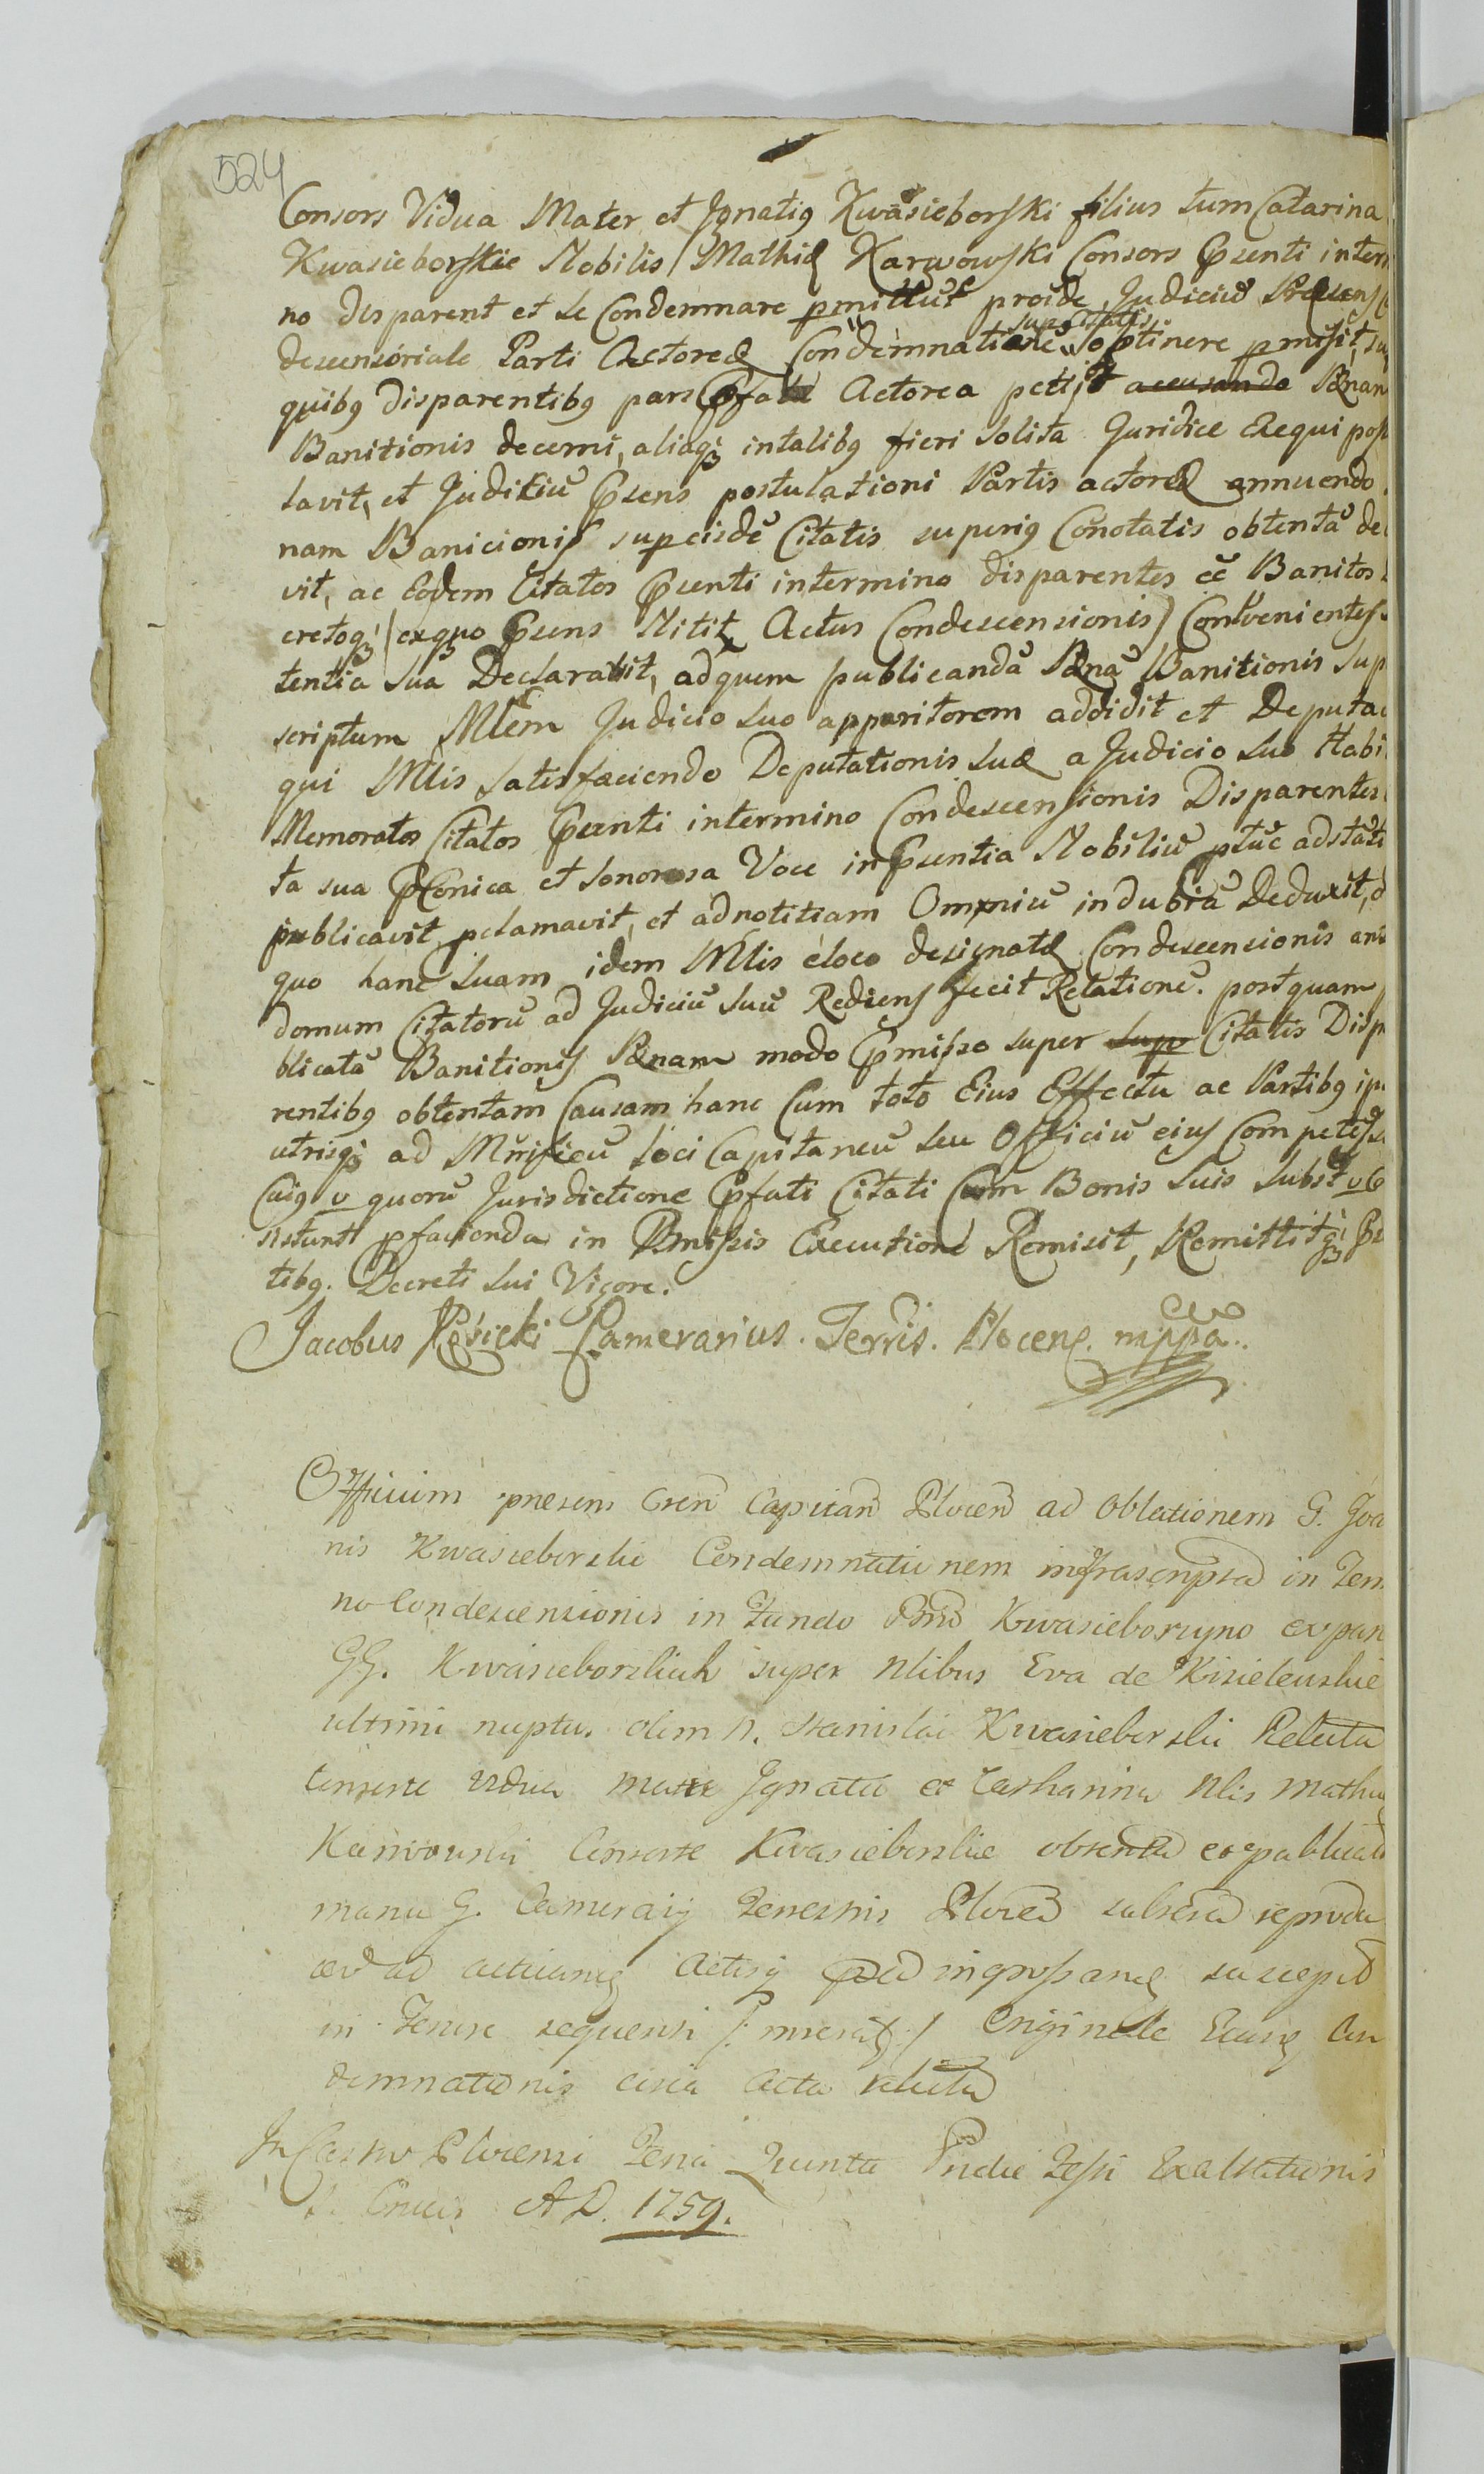 524
Consors Vidua Mater et Ignatiq Kwasieborski filius tum Catarina
Kwasieborskie Nobilis Mathiæ Karwowski Consors Pzenti inter
no disparent et se Condemnare pmittut proide Judiciu Præsens
descensoriale Parti Actoreæ Condemnatione super Citatis optinere pmisit,
quibq disparentibq pars Pfata Actorea petijt accusando Pænam
Banitionis decerni, aliaqz intalibq fieri solita Juridice Exequi pos
lavit, et Judiciu Pzens postulationi Partis actoreæ annuendo
nam Banicionis supeisde Citatis superiq Conotatis obtentā de
vit, ac Eodem Citatos Pzenti intermino disparentes eē Banitos
cretoqz (exquo Pzens Nitit Actus Condescensionis) Convenientes
tentiā suā Declaravit, adquem publicandā Pænā Banitionis sup
scriptum Mlem Judicio suo apparitorem addidit et Deputa
qui Mlis satisfaciendo Deputationis suæ a Judicio suo Habi
Memoratos Citatos Pzenti intermino Condescensionis Disparentes
ta sua Pconica et sonorosa Voce in Pzentia Nobiliū ptuc adstāti
publicavit, pclamavit, et adnotitiam Omniū indubiā Deduxit,
quo hanc suam idem Mlis eloco designatæ Condescensionis
domum Citatorū ad Judiciū suū Rediens fecit Relationē. postquam
blicatā Banitionis Pænam modo Pmisso super sup Citatis Disp
rentibq obtentam Causam hanc Cum toto Eius Effectu ac Partibq
utrisqz ad Mnificū loci Capitaneū seu Officiū eius Competes
Cuiq v quorū Jurisdictione Pfati Citati Cum Bonis suis subst
sistunt pfacienda in Pmissis Executione Remisit, Remittitqz
tibq. Decreti sui Vigore.
Jacobus Kosicki Camerarius. Terris. Plocens. mppa.
Officium presens Cren Capitan Plocen ad Oblationem G. Joa
nis Kwasieborski Condemnationem infrascriptā in Ter
no Condescensionis in Fundo Bno Kwasieborzyno ex par
GG. Kwasieborskich super Nlibus Eva de Kisielewskie
ultimi nuptus olim N. Stanislai Kwasieborski Relicta
Consorte Vidua matre Ignatio et Catharina Nlis Mathiæ
Karwowski Consorte Kwasieborskie obtentā et publicatā
manu G. Camerarij Terrestris Plocen subscrip
ad acticandū Actisqz ingrossandū suscepit
in Tenore sequenti Originale Eiusq Con
demnationis circa Acta relictū
In Castro Plocensi Feria Quinta Pridie Festi Exaltationis
S. Crucis A D. 1759.